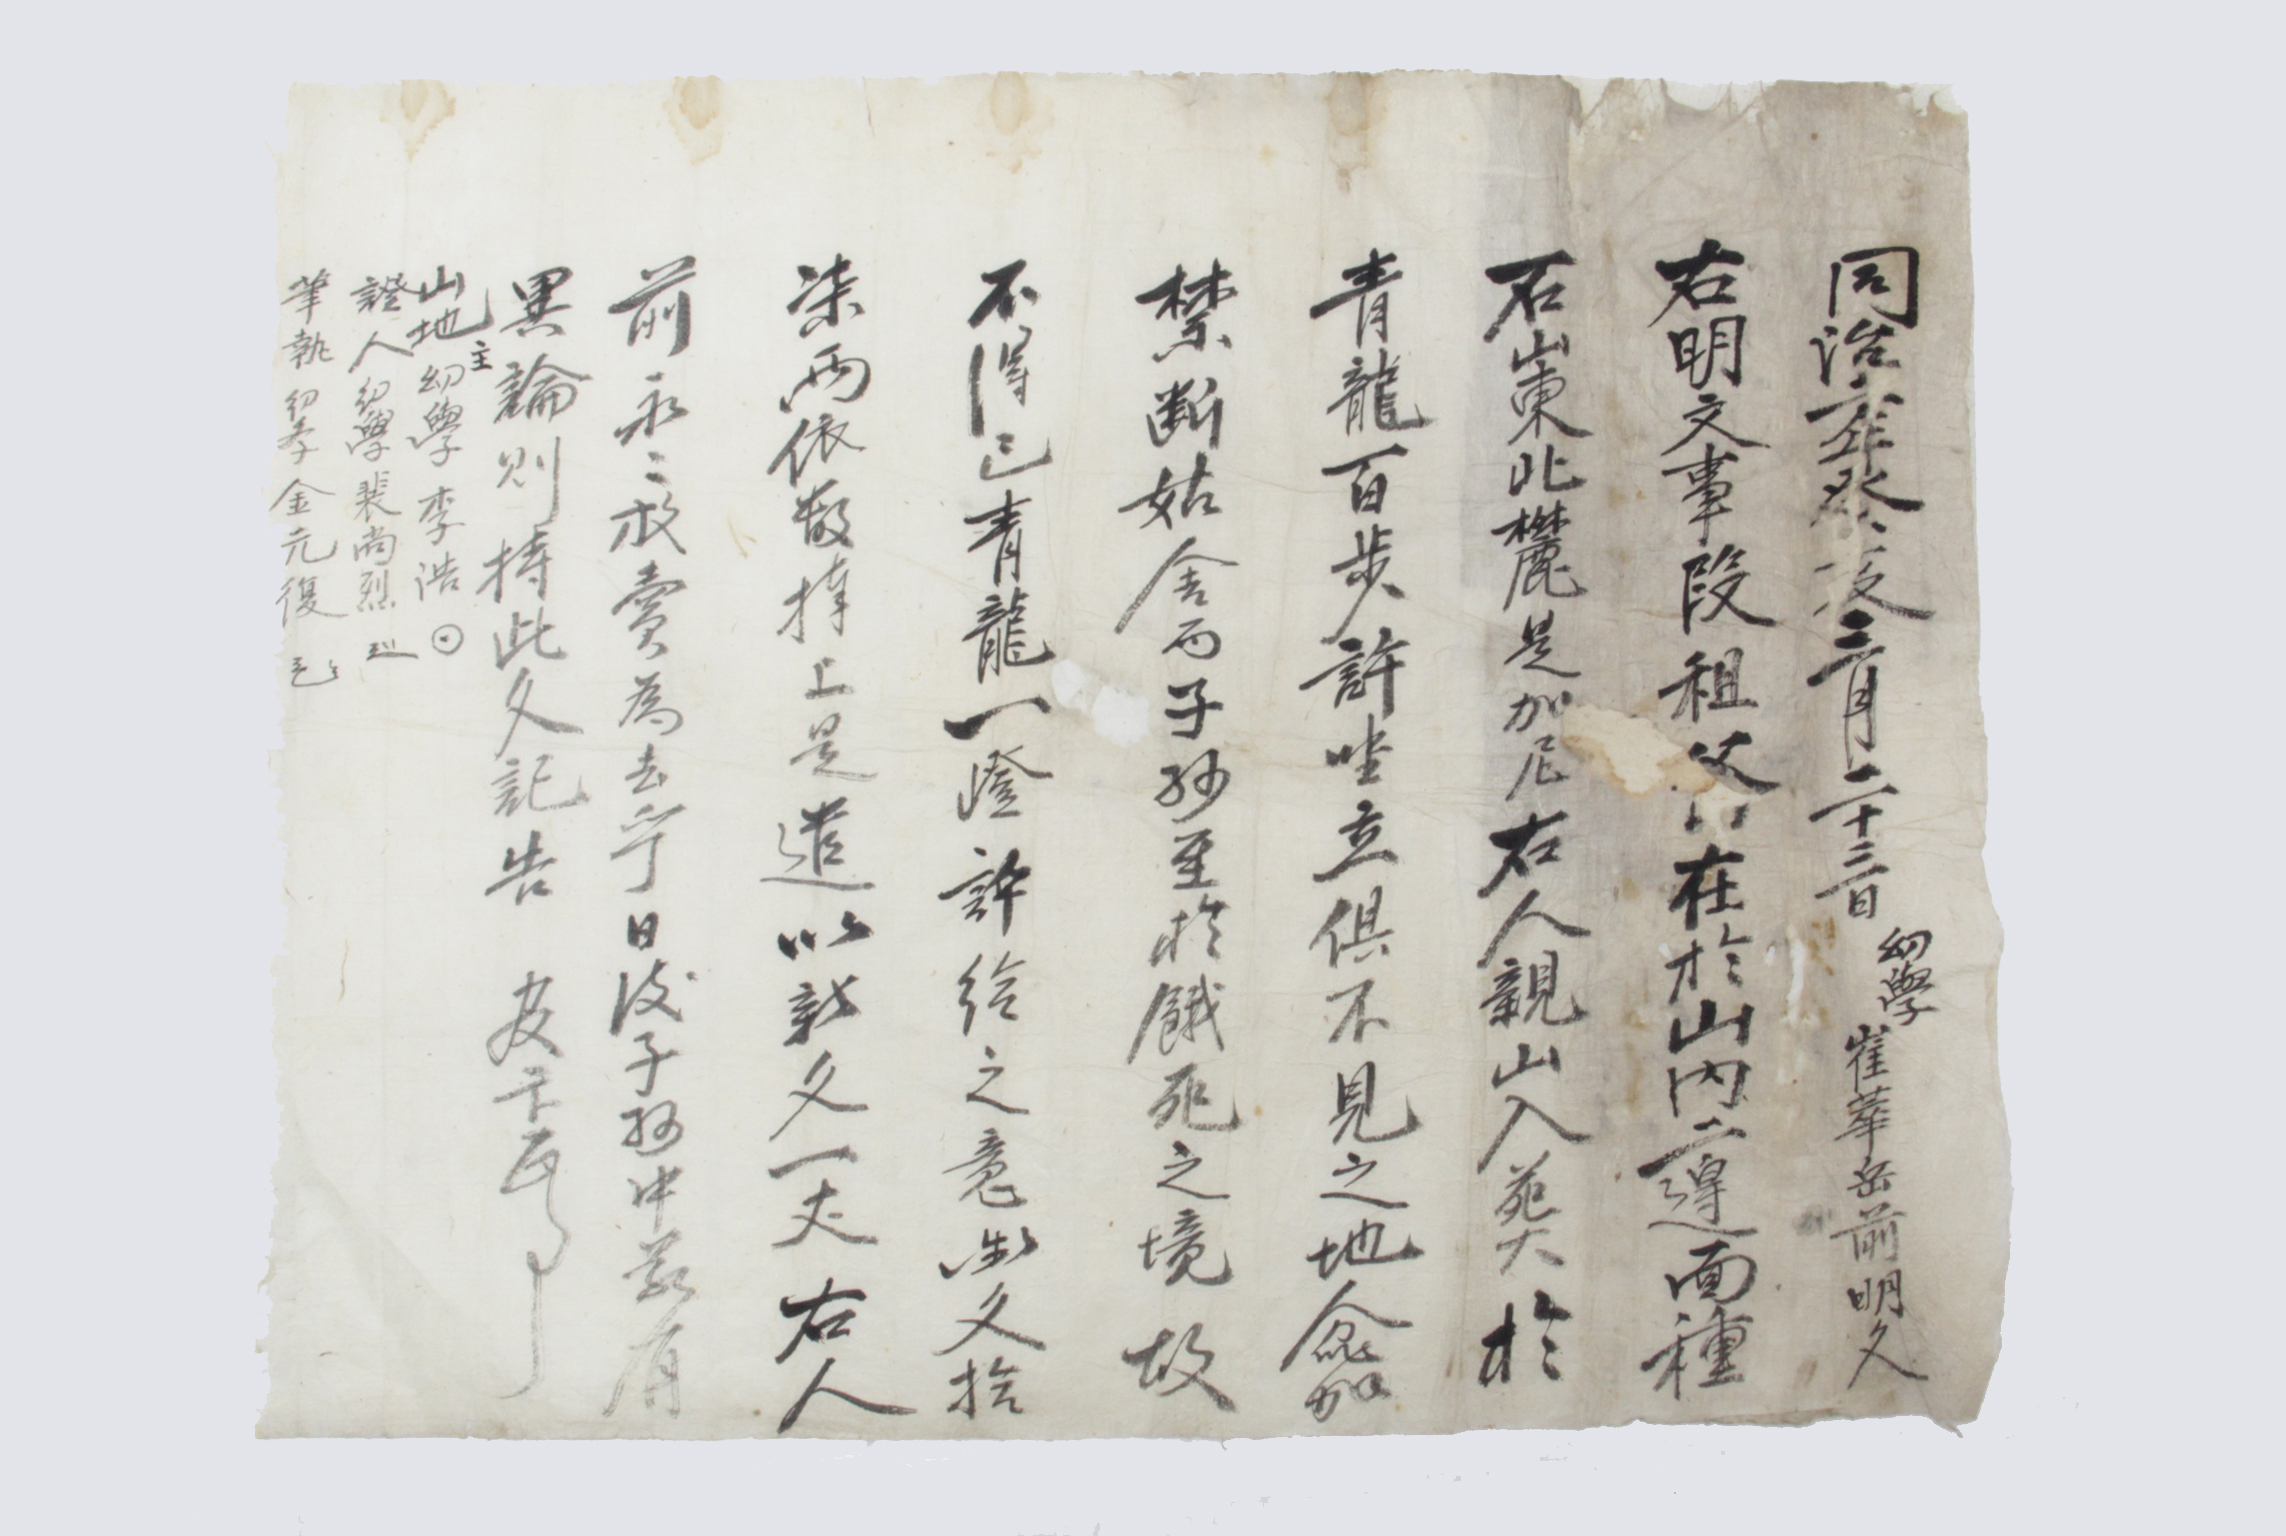 同治二年癸亥三月二十三日 幼學 崔華岳前明文
右明文事段祖父 在於山內二導面種
石山東北麓是加尼右人親山入葬於
青龍百步許坐立俱不見之地念加
禁斷姑舍而子孫至於餓死之境故
不得已青龍一嶝許給之意出文拾
柒兩依數捧上是遣以新文一丈右人
前永永放賣爲去乎日後子孫中若有
異論則持此文記告
山地主 幼學 李浩
證人 幼學 裴尚烈
筆執 幼學 金元復